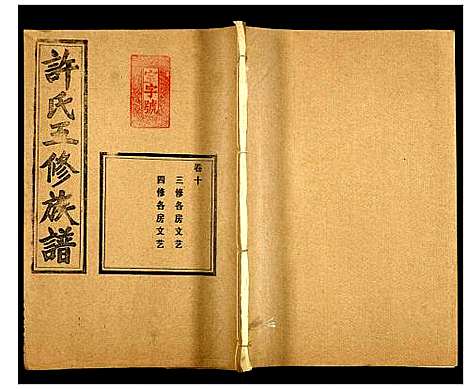 許氏五修族譜
卷十
三修各房文艺
四修各房文艺
字號